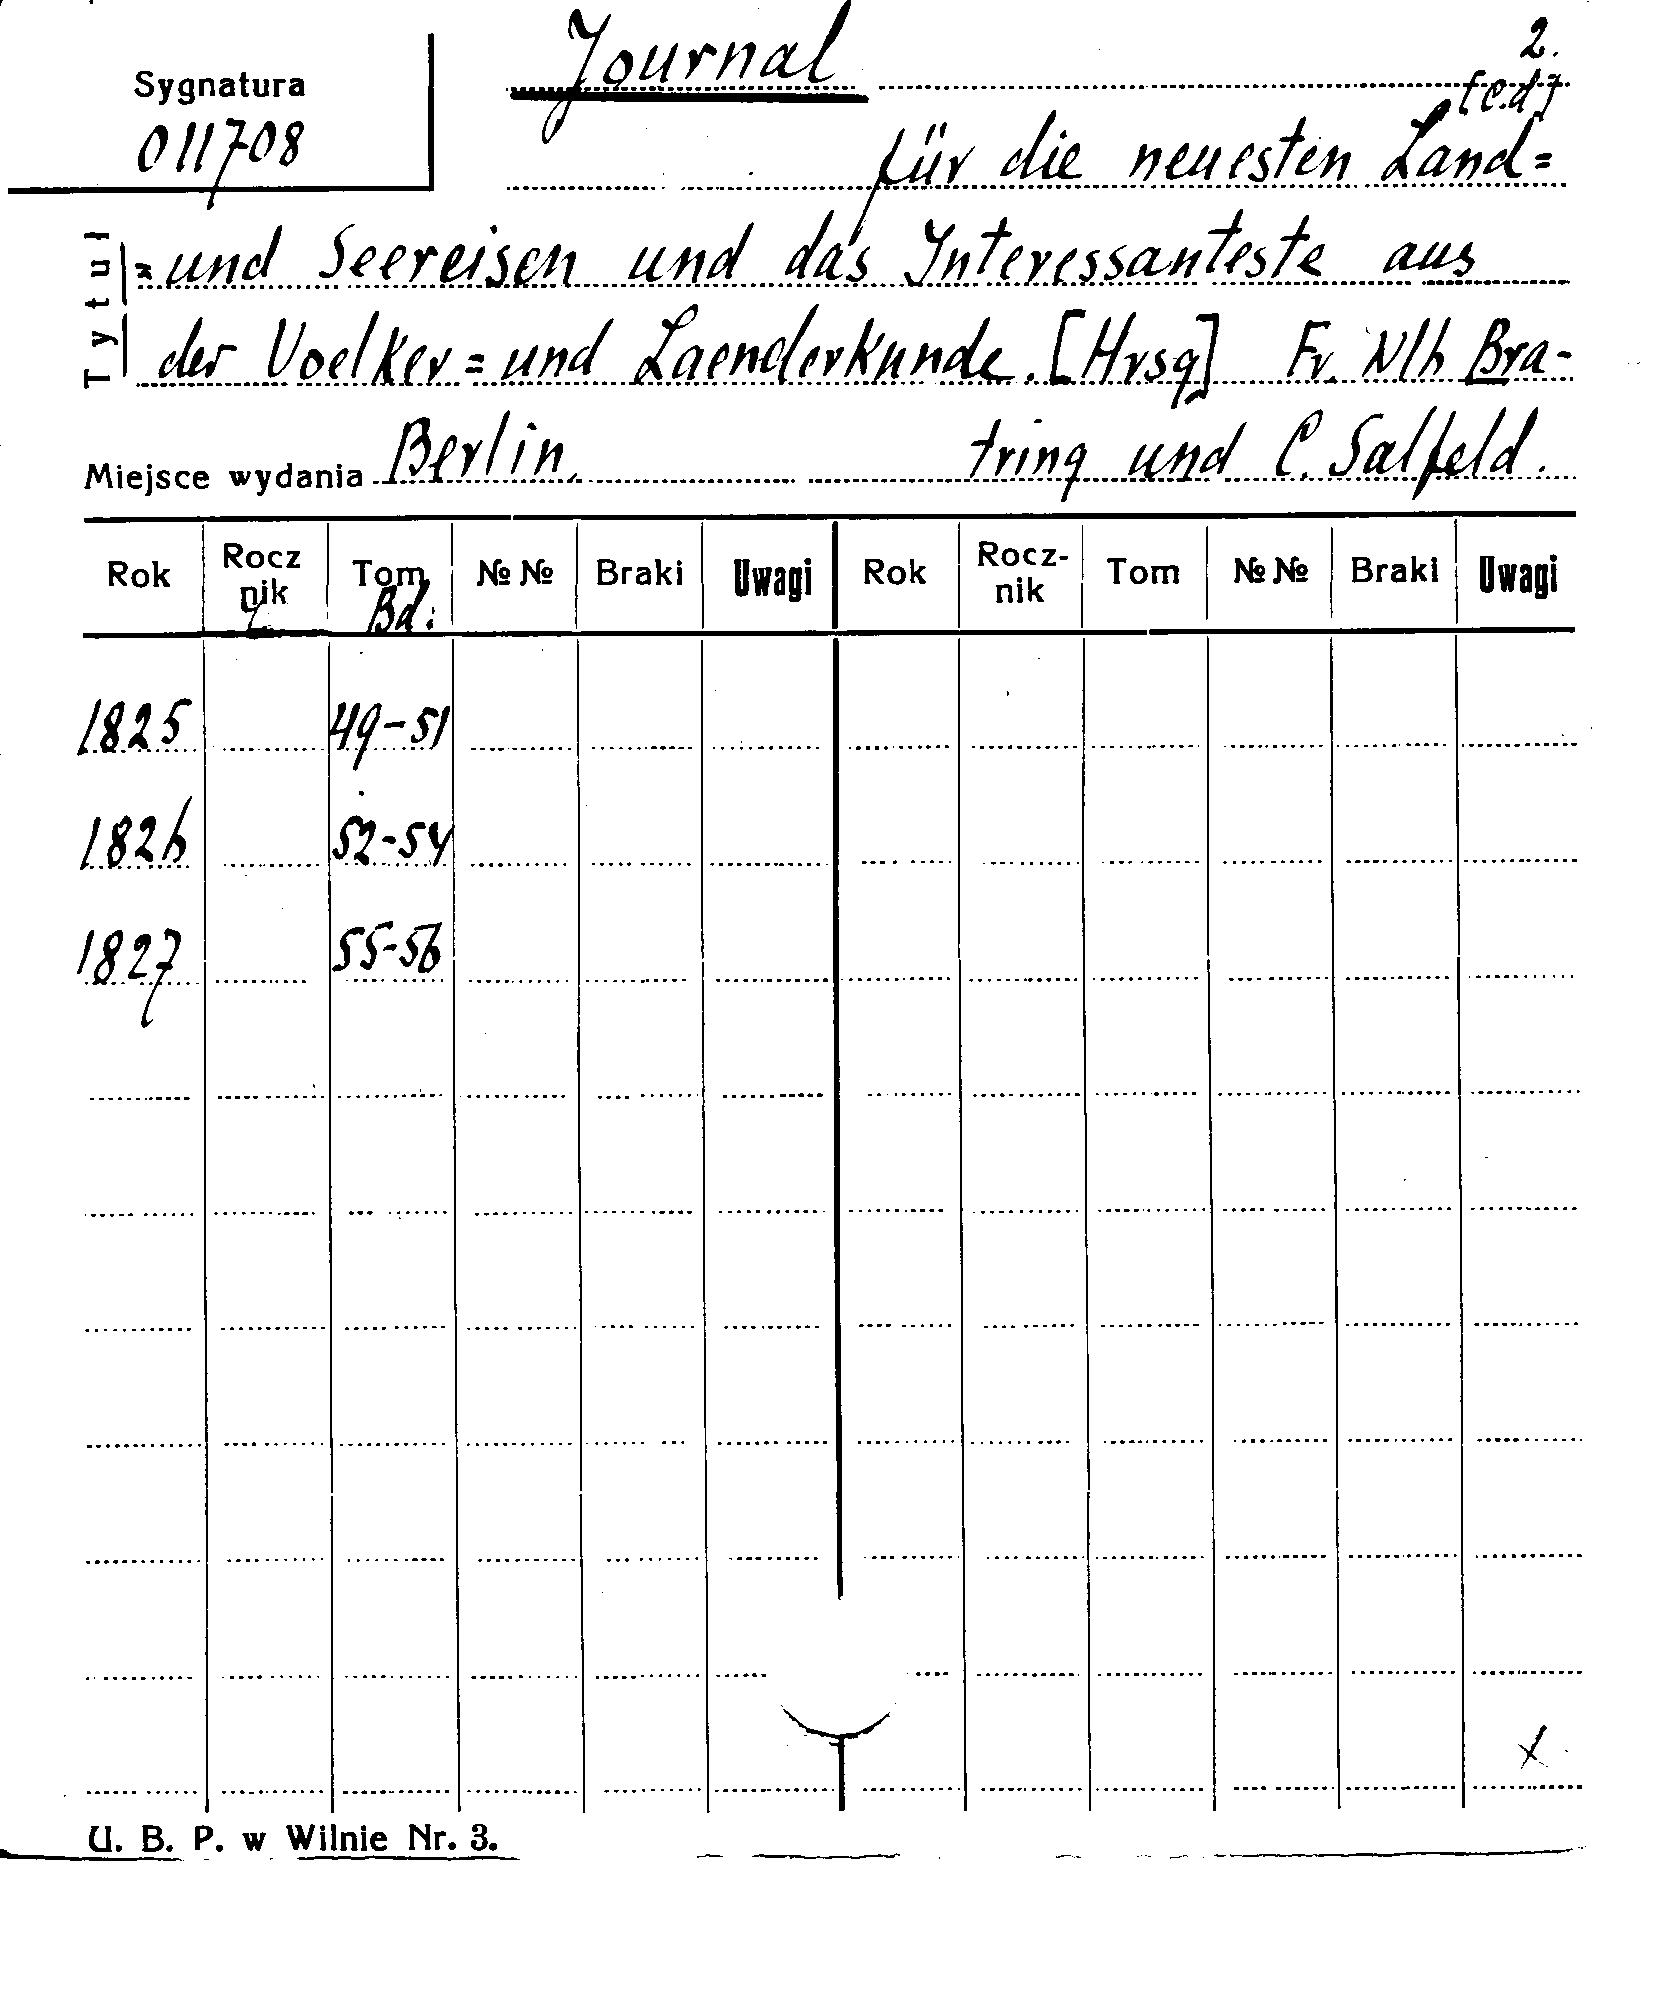 Sygnatura
011708
Journal
2.
[c.d]
für die neuesten Land=
Tytuł
=und Seereisen und das Interessanteste aus
der Voelker=und Laenderkunde. [Hrsg] Fr. Wlh Bra-
Miejsce wydania Berlin. tring und C. Salfeld.
Rok Rocz nik Tom Bd. №№ Braki Uwagi Rok Rocz- nik Tom №№ Braki Uwagi
1825 49-51
1826 52-54
1827 55-56
x
U. B. P. w Wilnie Nr. 3.